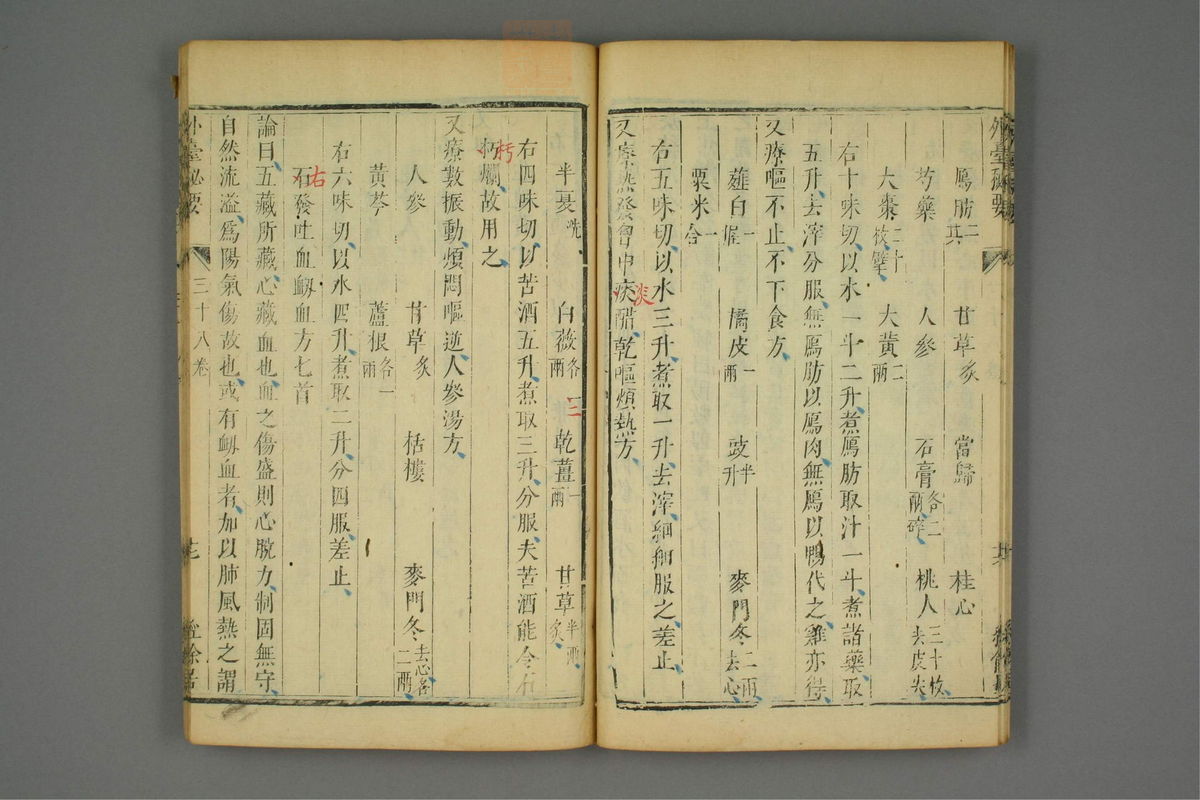 外臺祕要
鴈肪二具 甘草炙 當歸 桂心
芍藥 人參 石膏各二兩碎 桃人三十枚去皮尖
大棗二十枚擘 大黃二兩
右十味切以水一斗二升煮鴈肪取汁一斗煮諸藥取
五升去滓分服無鴈肪以鴈肉無鴈以鴨代之雞亦得
又療嘔不止不下食方
薤白一握 橘皮一兩 豉半升 麥門冬二兩去心
粟米一合
右五味切以水三升煮取一升去滓細細服之差止
又療熱發會中痰醋乾嘔煩熱方
淡
半夏洗 白薇各三兩 乾薑一兩 甘草半兩炙
右四味切以苦酒五升煮取三升分服夫苦酒能令石
朽爛故用之
朽
又療數振動煩悶嘔逆人參湯方
人參 甘草炙 栝樓 麥門冬去心各二兩
黃芩 蘆根各一兩
右六味切以水四升煮取二升分四服差止
石發吐血衂血方七首
右
論曰五藏所藏心藏血也血之傷盛則心脫力制固無守
自然流溢爲陽氣傷故也或有衂血者加以肺風熱之謂
外臺祕要 三十八卷 七 經餘居